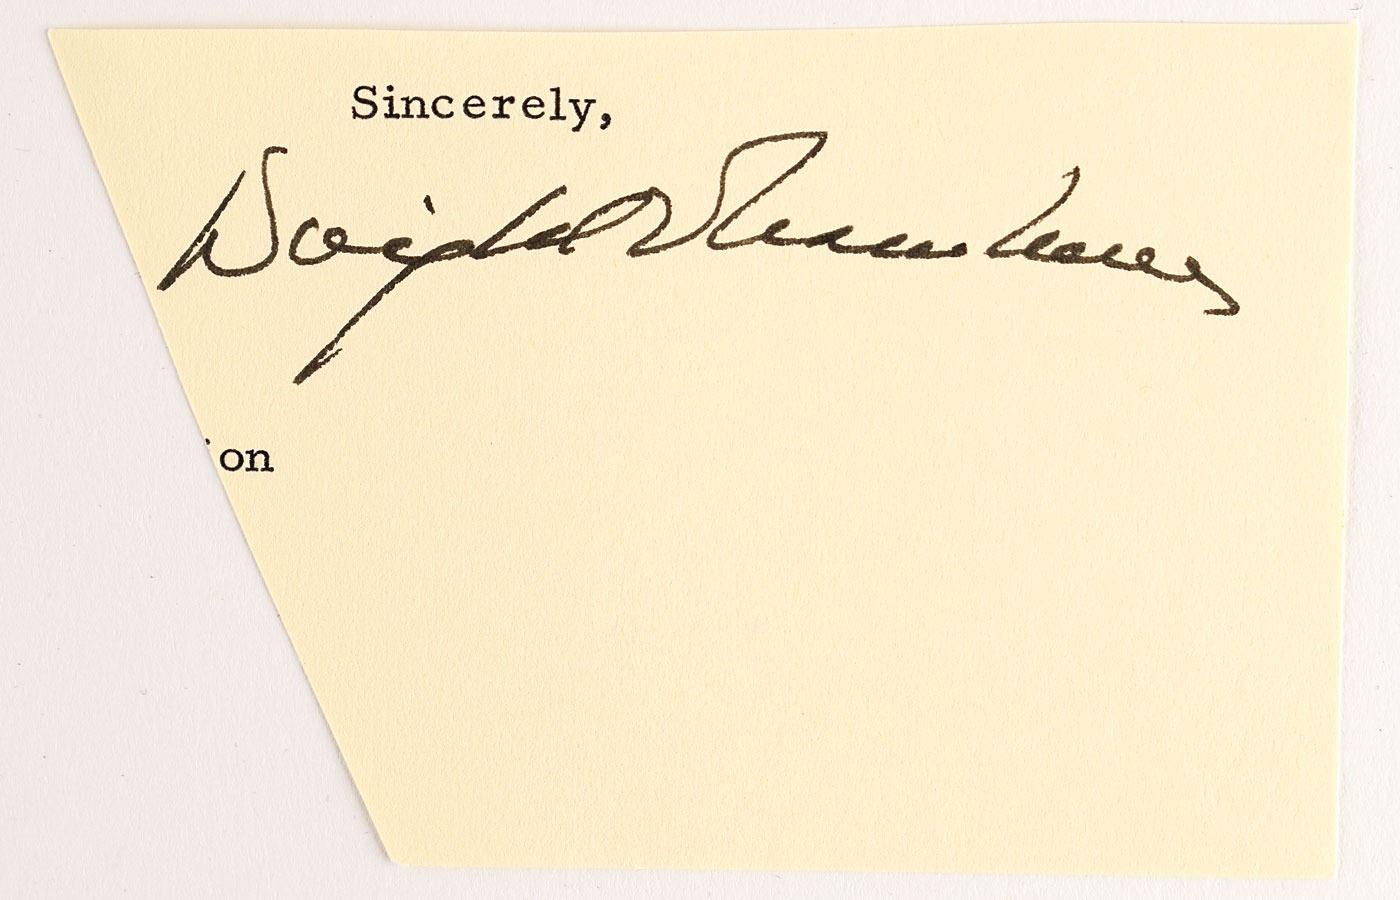 Sincerely,
Dwight D Eisenhower
on